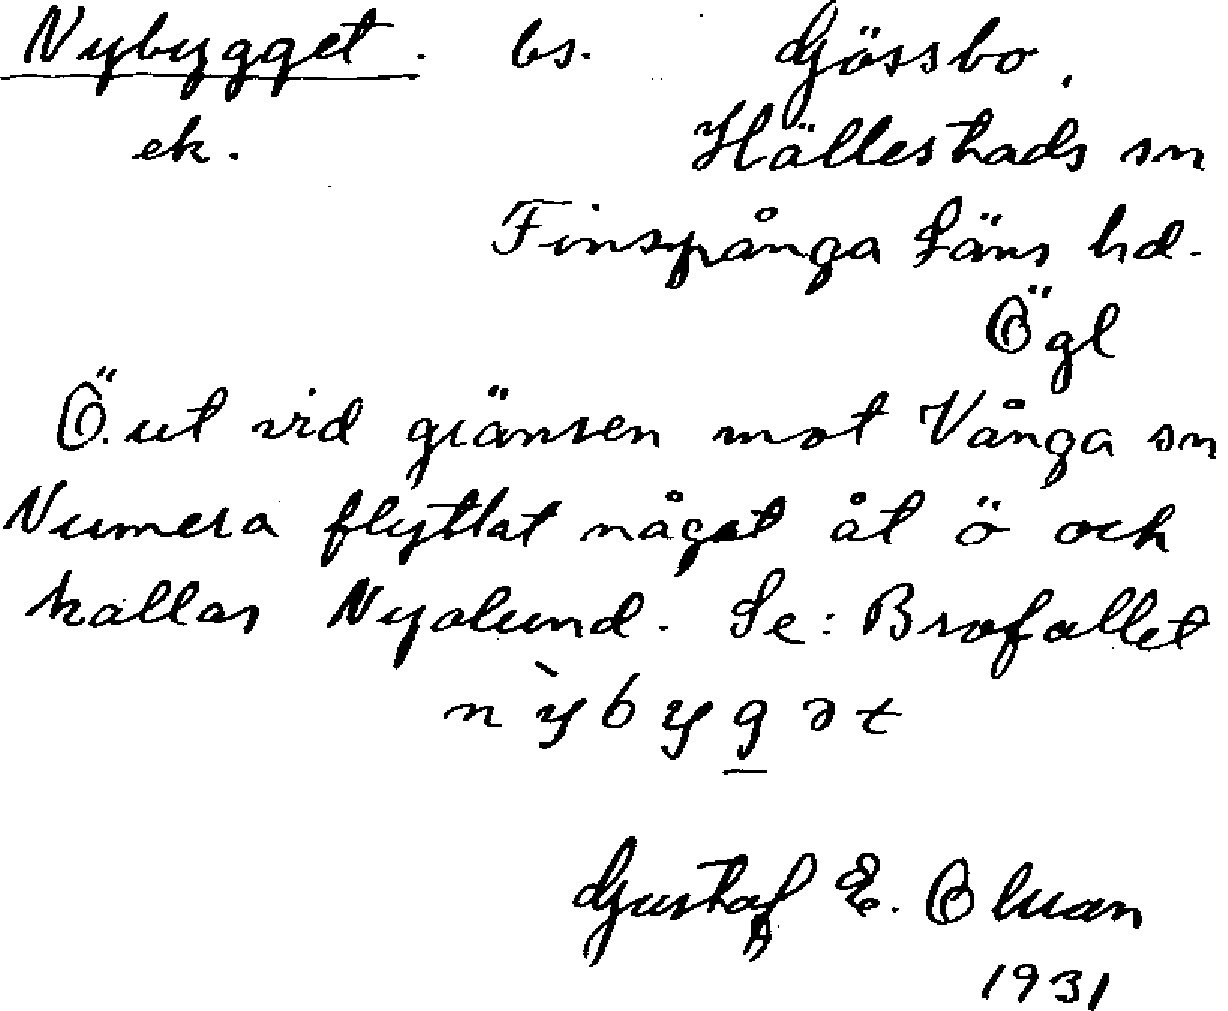 Nybygget. bs. Gössbo,
ek. Hällestads sn
Finspånga Läns hd.
Ögl
Ö. ut vid gränsen mot Vånga sn
Numera flyttat något åt ö och
kallas Nyalund. Se: Brofallet
nỳbygət
Gustaf E.
1931